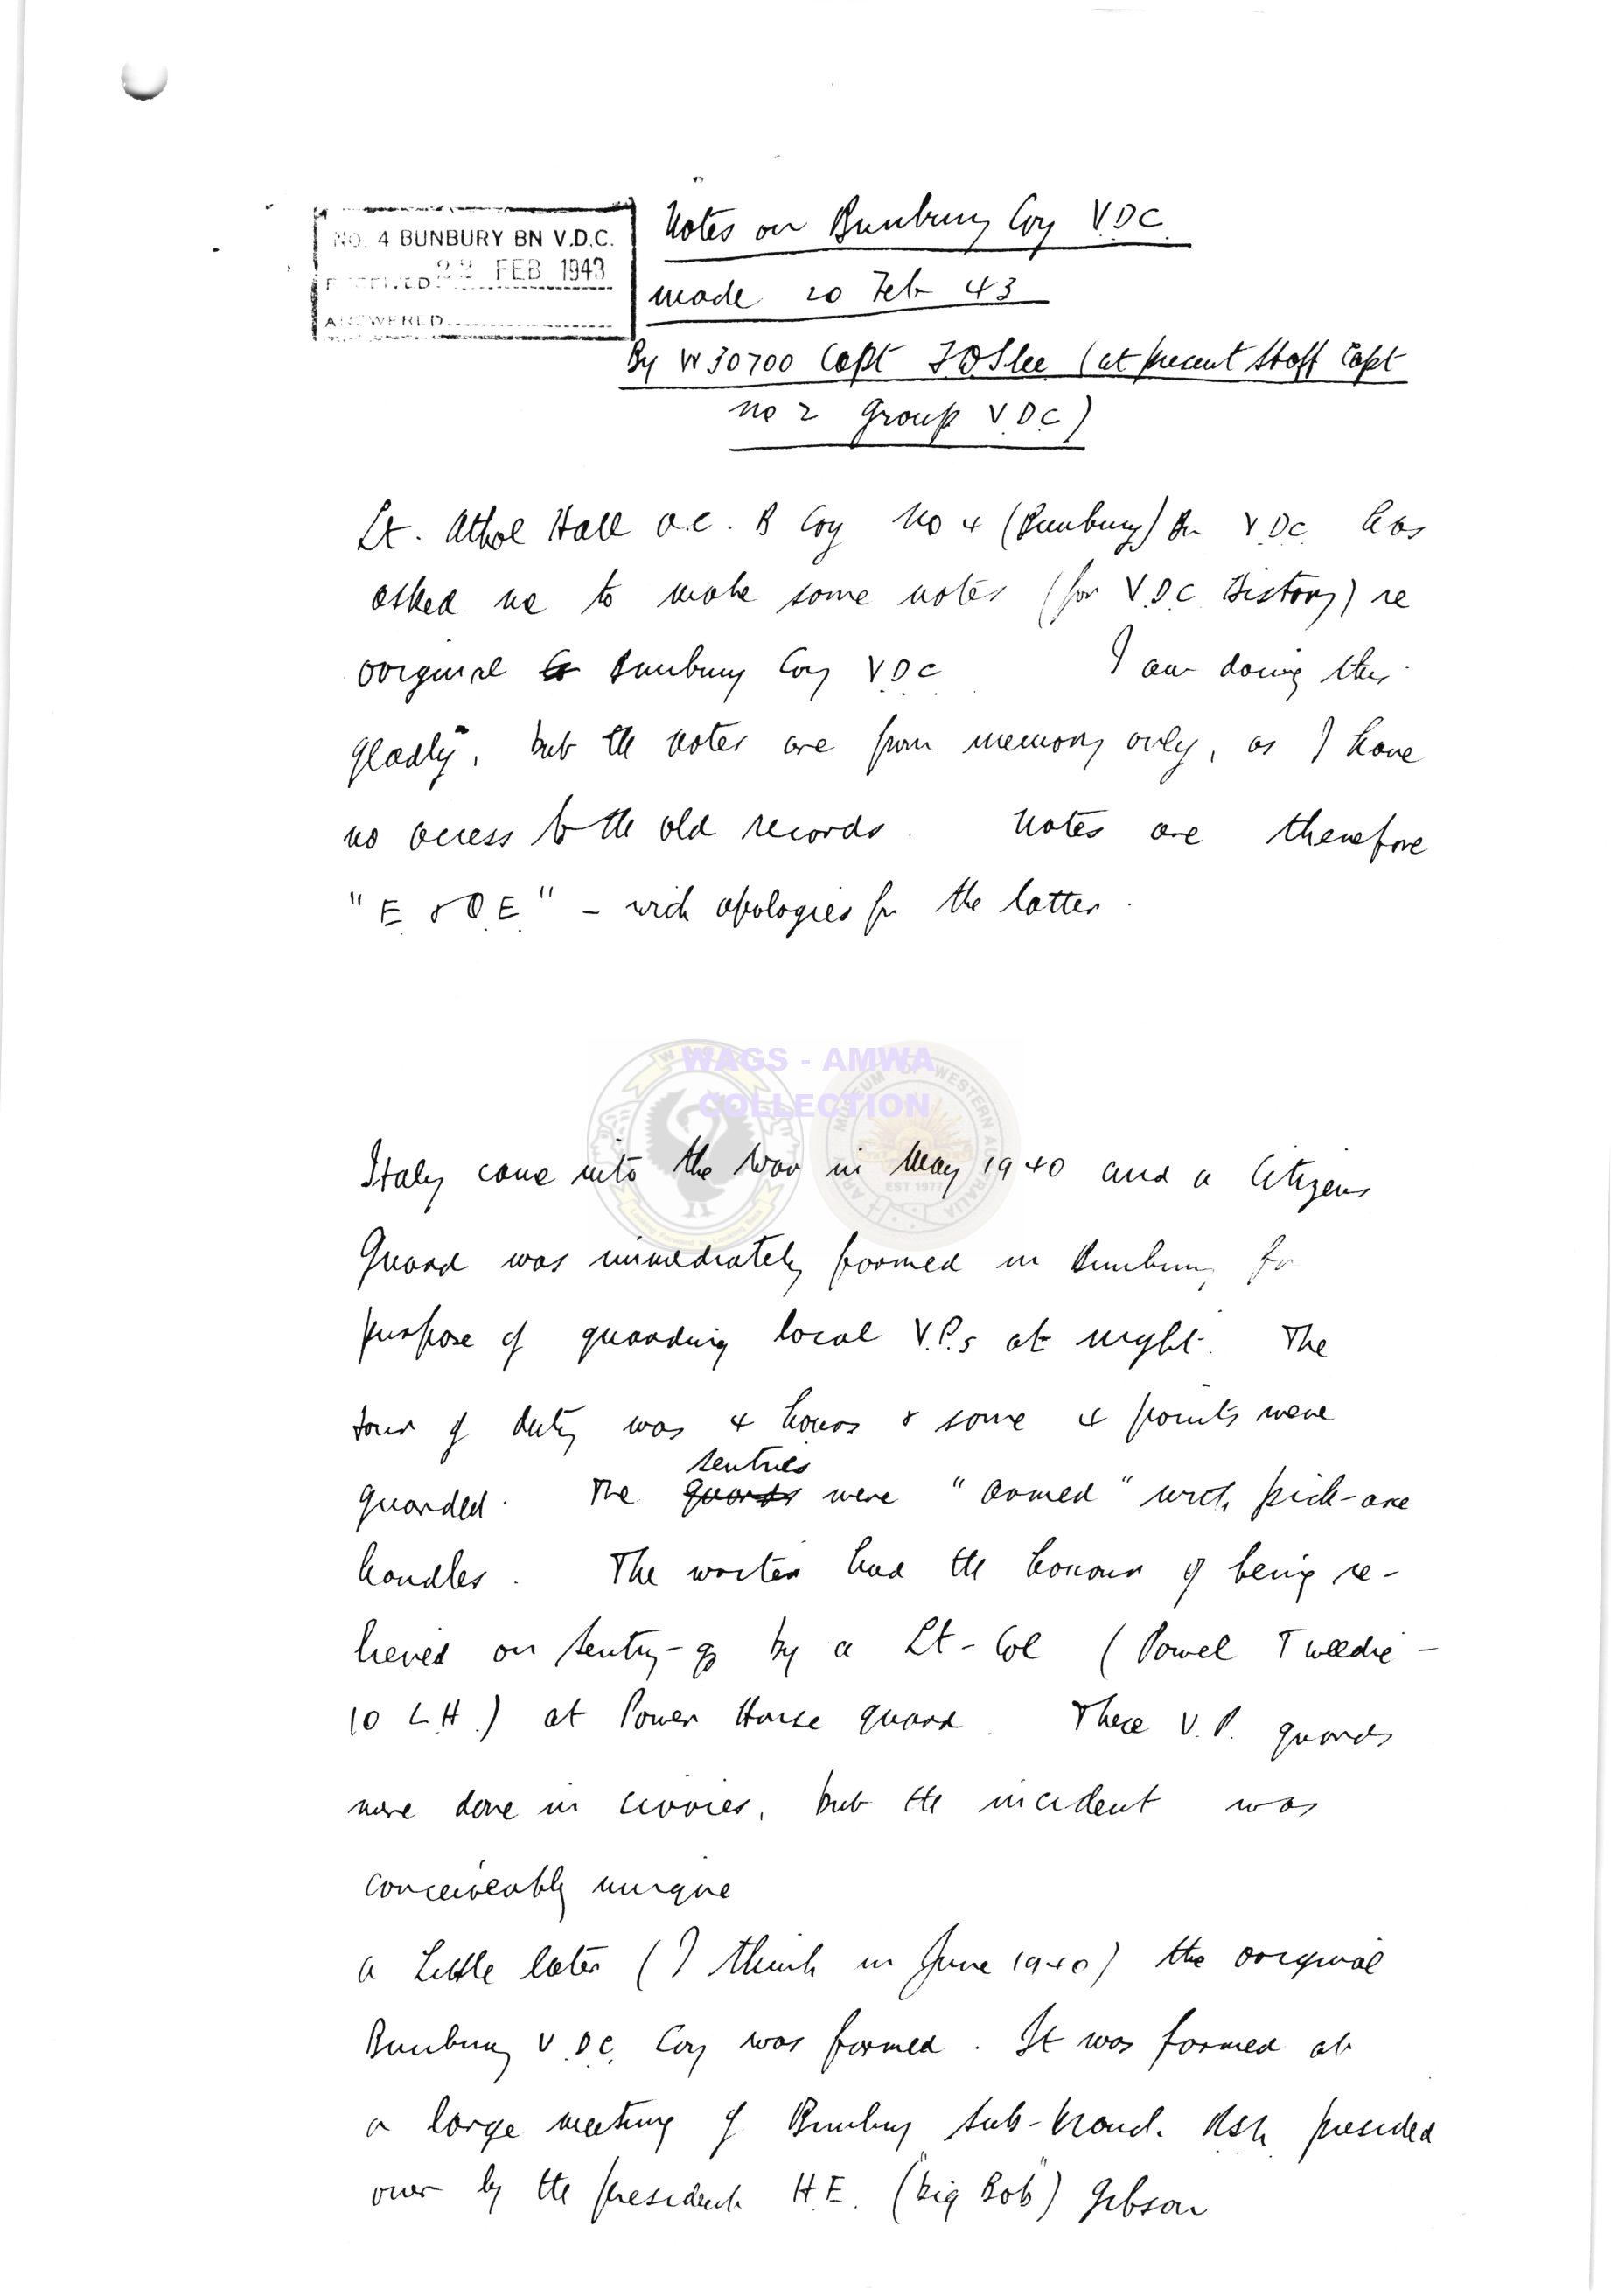 NO. 4 BUNBURY BN V.D.C.
RECEIVED 22 FEB 1943
ANSWERED
Notes on Bunbury Coy V.D.C.
made 20 Feb 43
By W30700 Capt Slee (at present Staff Capt
no 2 Group V.D.C)
Lt. Athol Hall O.C. B Coy No 4 (Bunbury) Bn V.D.C. has
asked me to make some notes (for V.D.C. History) re
original Co Bunbury Coy V.D.C I am doing this
gladly, but the notes are from memory only, as I have
no access to the old records. Notes are therefore
"E & O.E." - with apologies for the latter.
WAGS - AMWA
COLLECTION
MUSEUM OF WESTERN AUSTRALIA
EST 1977
Italy came into the War in May 1940 and a Citizens
Guard was immediately formed in Bunbury for
purpose of guarding local V.P.s at night. The
tour of duty was 4 hours & some 4 points were
sentries
guarded. The guards were "armed" with pick-axe
handles. The writer had the honour of being re-
lieved on sentry-go by a Lt-Col (Powel Tweedie -
10 L.H.) at Power House guard. These V.P. guards
were done in civvies, but the incident was
conceiveably unique
a little later (I think in June 1940) the original
Bunbury V.D.C. Coy was formed. It was formed at
a large meeting of Bunbury Sub-branch RSL presided
over by the president H.E. ("Big Bob") Gibson